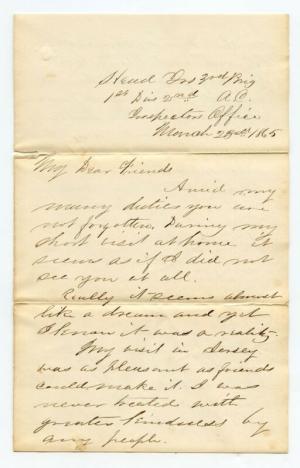 Head Qrs 3rd Brig
1st Div 2nd A.C.
Inspectors Office
March 28th 1865
My Dear Friends
Amid my
many duties you are
not forgotten. During my
short visit at home it
seems as if I did not
see you at all.
Really it seems almost
like a dream and yet
I know it was a reality.
My visit in Jersey
was as pleasant as friends
could make it. I was
never treated with
greater kindness by
any people.